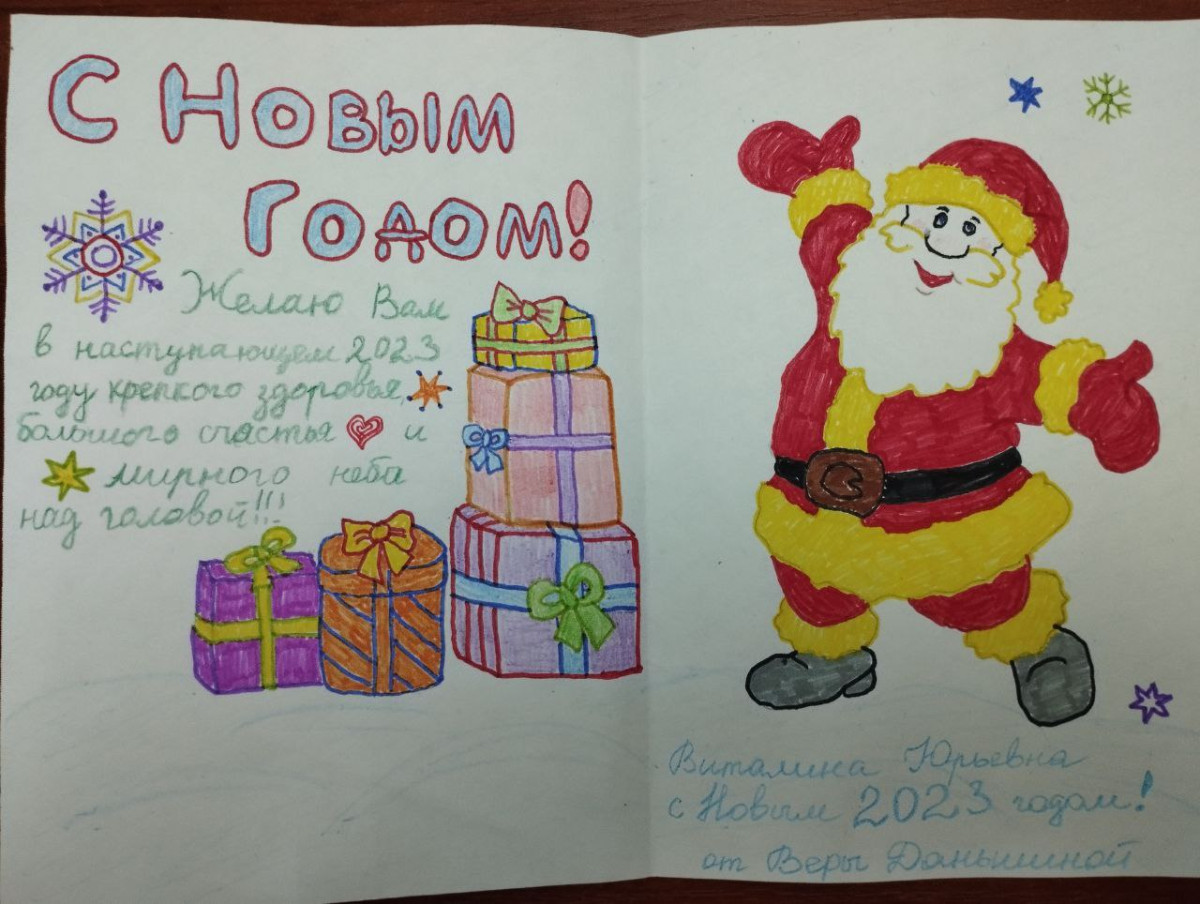 С Новым
Годом!
Желаю Вам
в наступающем 2023
году крепкого здоровья,
большого счастья и
мирного неба
над головой!!!
Виталина Юрьевна
с Новым 2023 годом!
от Веры Даньшиной